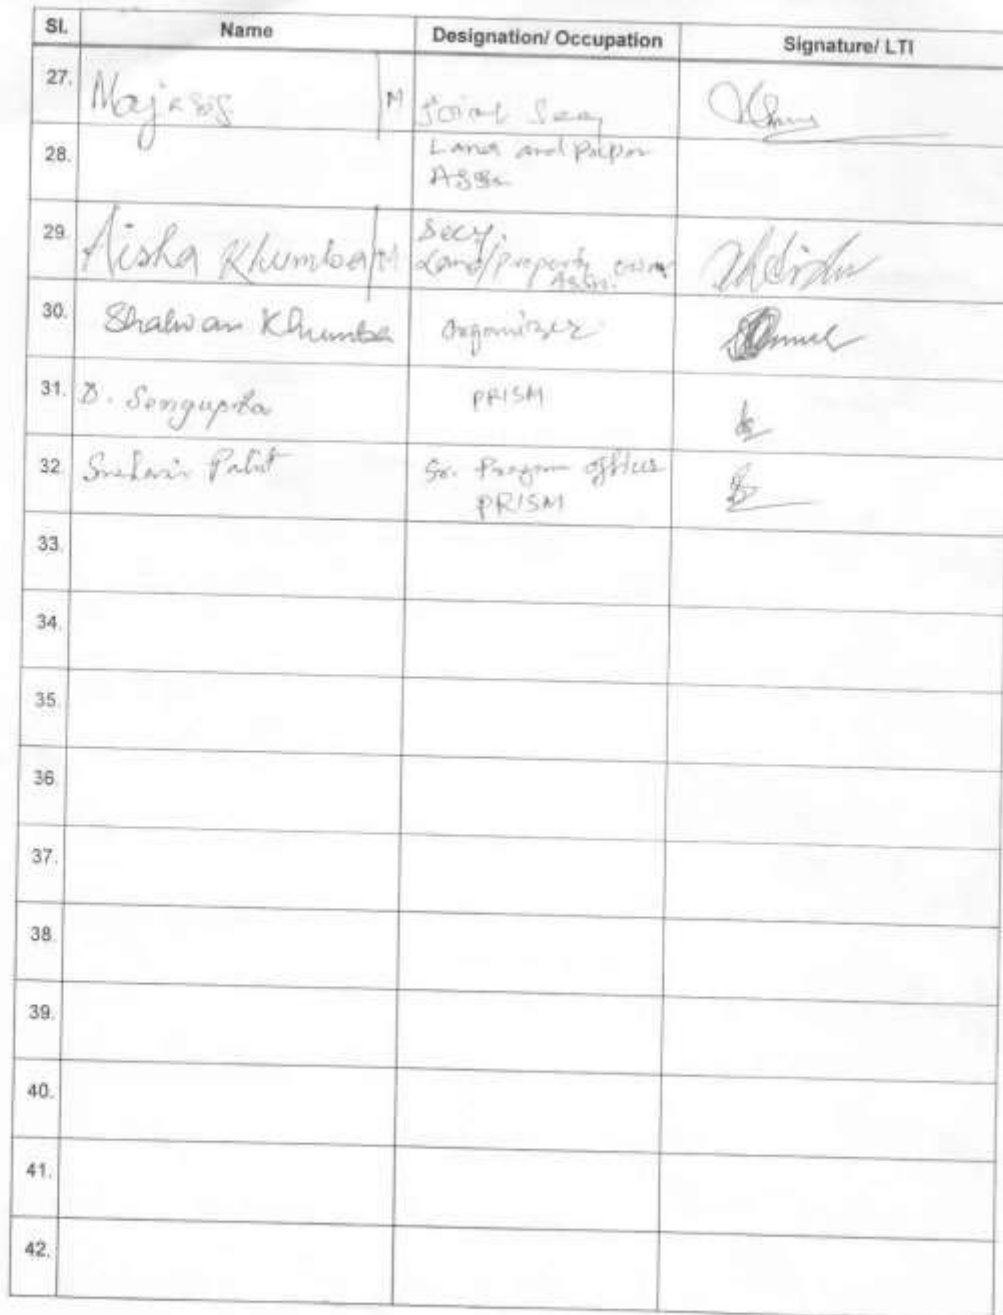 Sl. Name Designation/ Occupation Signature/ LTI
27. M Joint Secy
28. Land and
Assn.
29. Aisha Khumba M Secy.
Land/property owner
Assn.
30. Shalwan Khumba Organizer
31. D. Sengupta PRISM
32. Sr. Program Officer
PRISM
33.
34.
35.
36.
37.
38.
39.
40.
41.
42.